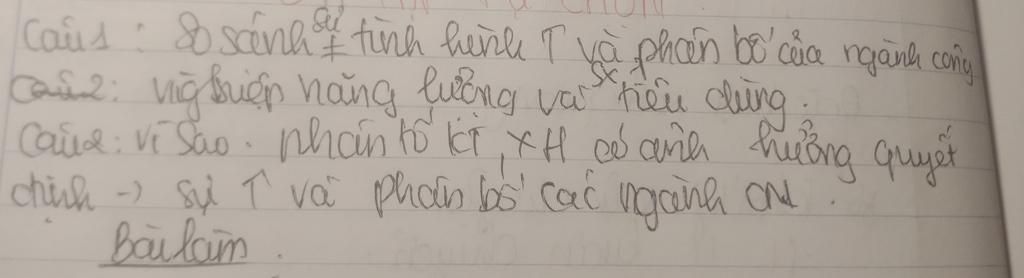 Câu 1: So sánh sự ≠ tình hình ↑ và phân bố của ngành công
Câu 2: nghiệp năng lượng và sx tiêu dùng.
Câu 2: Vì sao nhân tố KT, XH có ảnh hưởng quyết
định → sự ↑ và phân bố các ngành CN.
Bài làm.